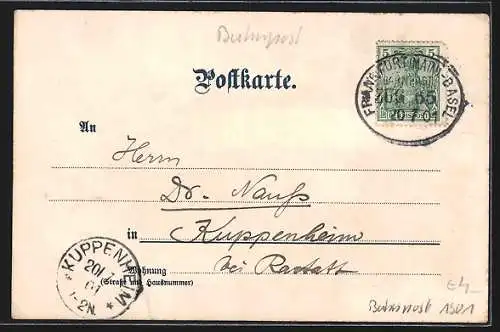 Bahnpost
Postkarte.
5 5
FRANKFURT (MAIN)-BASEL
ZUG 65
An
Herrn
Dr. Nauß
in Kuppenheim
bei Rastatt
Wohnung
(Straße und Hausnummer)
KUPPENHEIM
20
01
-2N.
Bahnpost 1901